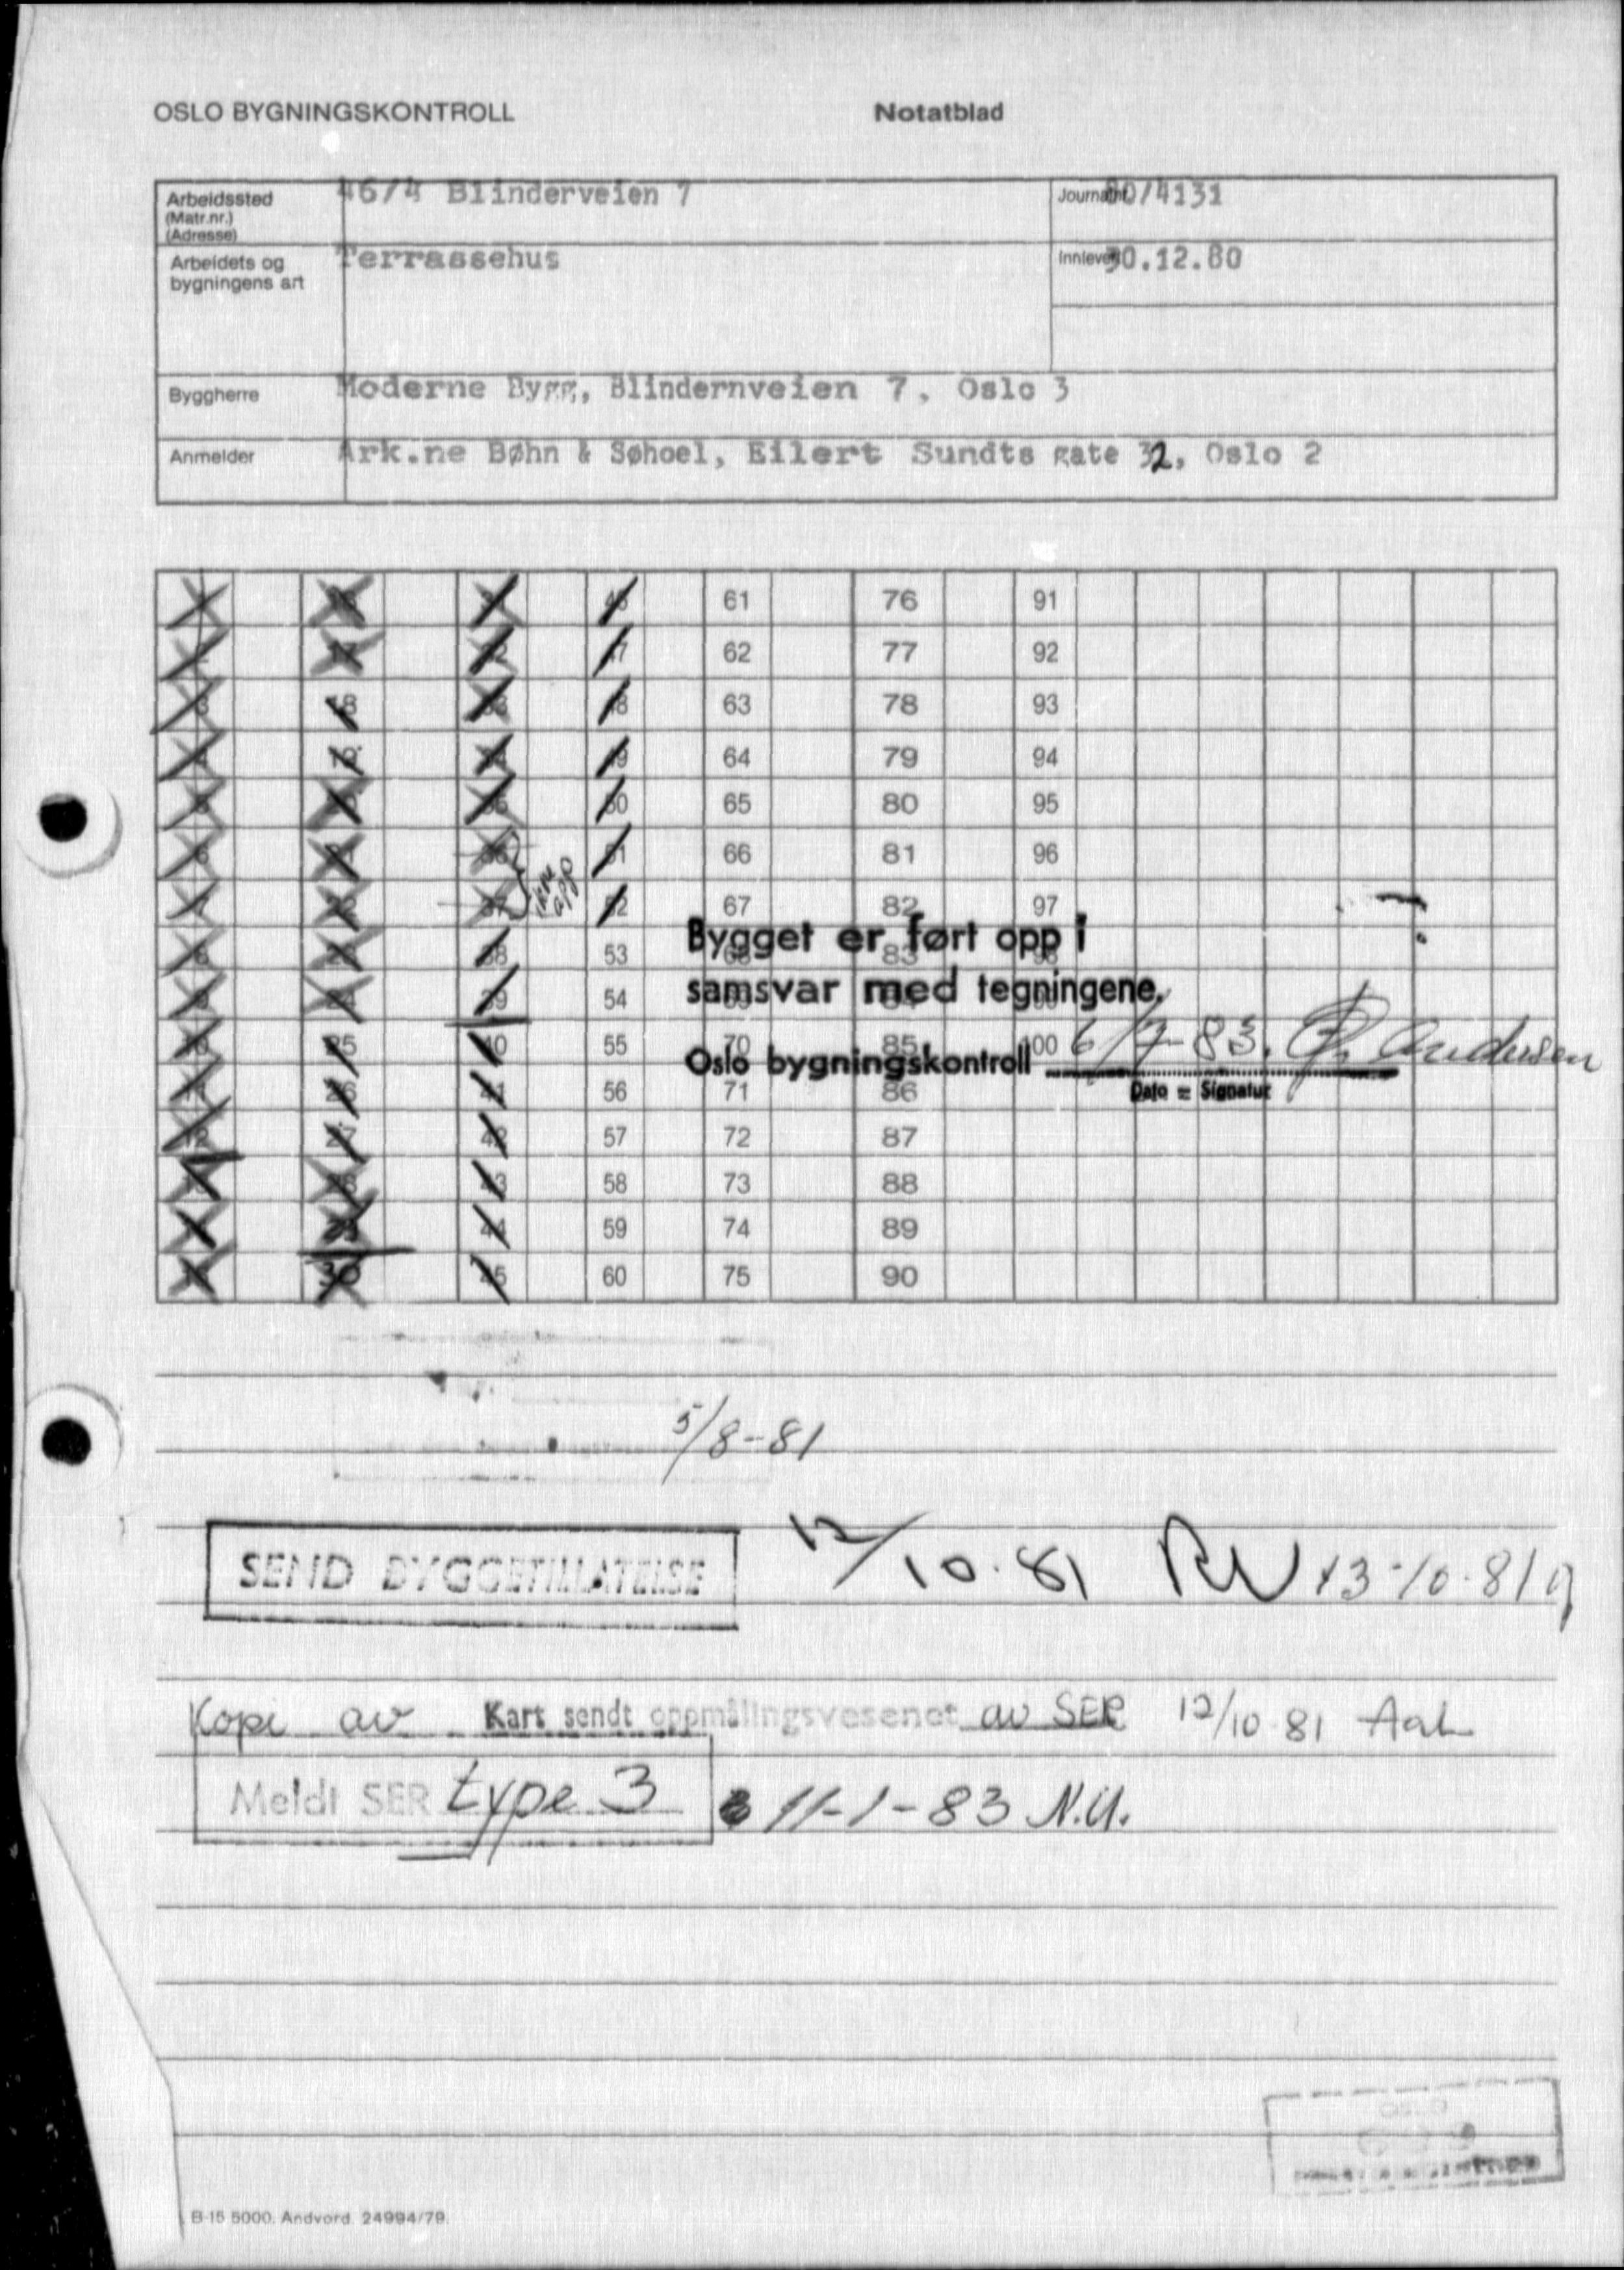 OSLO BYGNINGSKONTROLL Notatblad
Arbeidssted
(Matr.nr.)
(Adresse)
46/4 Blinderveien 7
Journalnr. 80/4131
Arbeidets og
bygningens art
Terrassehus
Innlevert 30.12.80
Byggherre Moderne Bygg, Blindernveien 7, Oslo 3
Anmelder Ark.ne Bøhn & Søhoel, Eilert Sundts gate 32, Oslo 2
61 76 91
62 77 92
18 63 78 93
19 49 64 79 94
50 65 80 95
36 51 66 81 96
37 ikke opp 52 67 82 97
38 53 83
39 54
25 40 55 70 85 100
26 41 56 71 86
12 27 42 57 72 87
43 58 73 88
44 59 74 89
30 45 60 75 90
Bygget er ført opp i
samsvar med tegningene.
Oslo bygningskontroll 6/7-83. Andersen
Dato = Signatur
5/8-81
SEND BYGGETILLATELSE 12/10.81 RW 13-10-81
Kopi av Kart sendt oppmålingsvesenet av SER 12/10 81
Meldt SER type 3 11-1-83 N.U.
OSLO
B-15 5000. Andvord 24994/79.